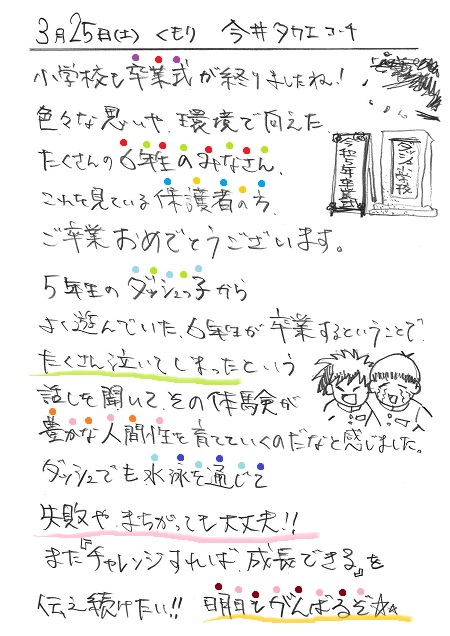 3月25日(土) くもり 今井タクエコーチ
小学校も卒業式が終りましたね!
色々な思いや、環境で向えた
たくさんの6年生のみなさん、
これを見ている保護者の方、
ご卒業おめでとうございます。
令和5年卒業式
ダッシュ小学校
5年生のダッシュっ子から
よく遊んでいた、6年生が卒業するということで、
たくさん泣いてしまったという
話しを聞いて、その体験が
豊かな人間性を育てていくのだなと感じました。
ダッシュでも水泳を通じて
失敗や、まちがっても大丈夫!!
また『チャレンジすれば、成長できる』を
伝え続けたい!! 明日もがんばるぞ☆